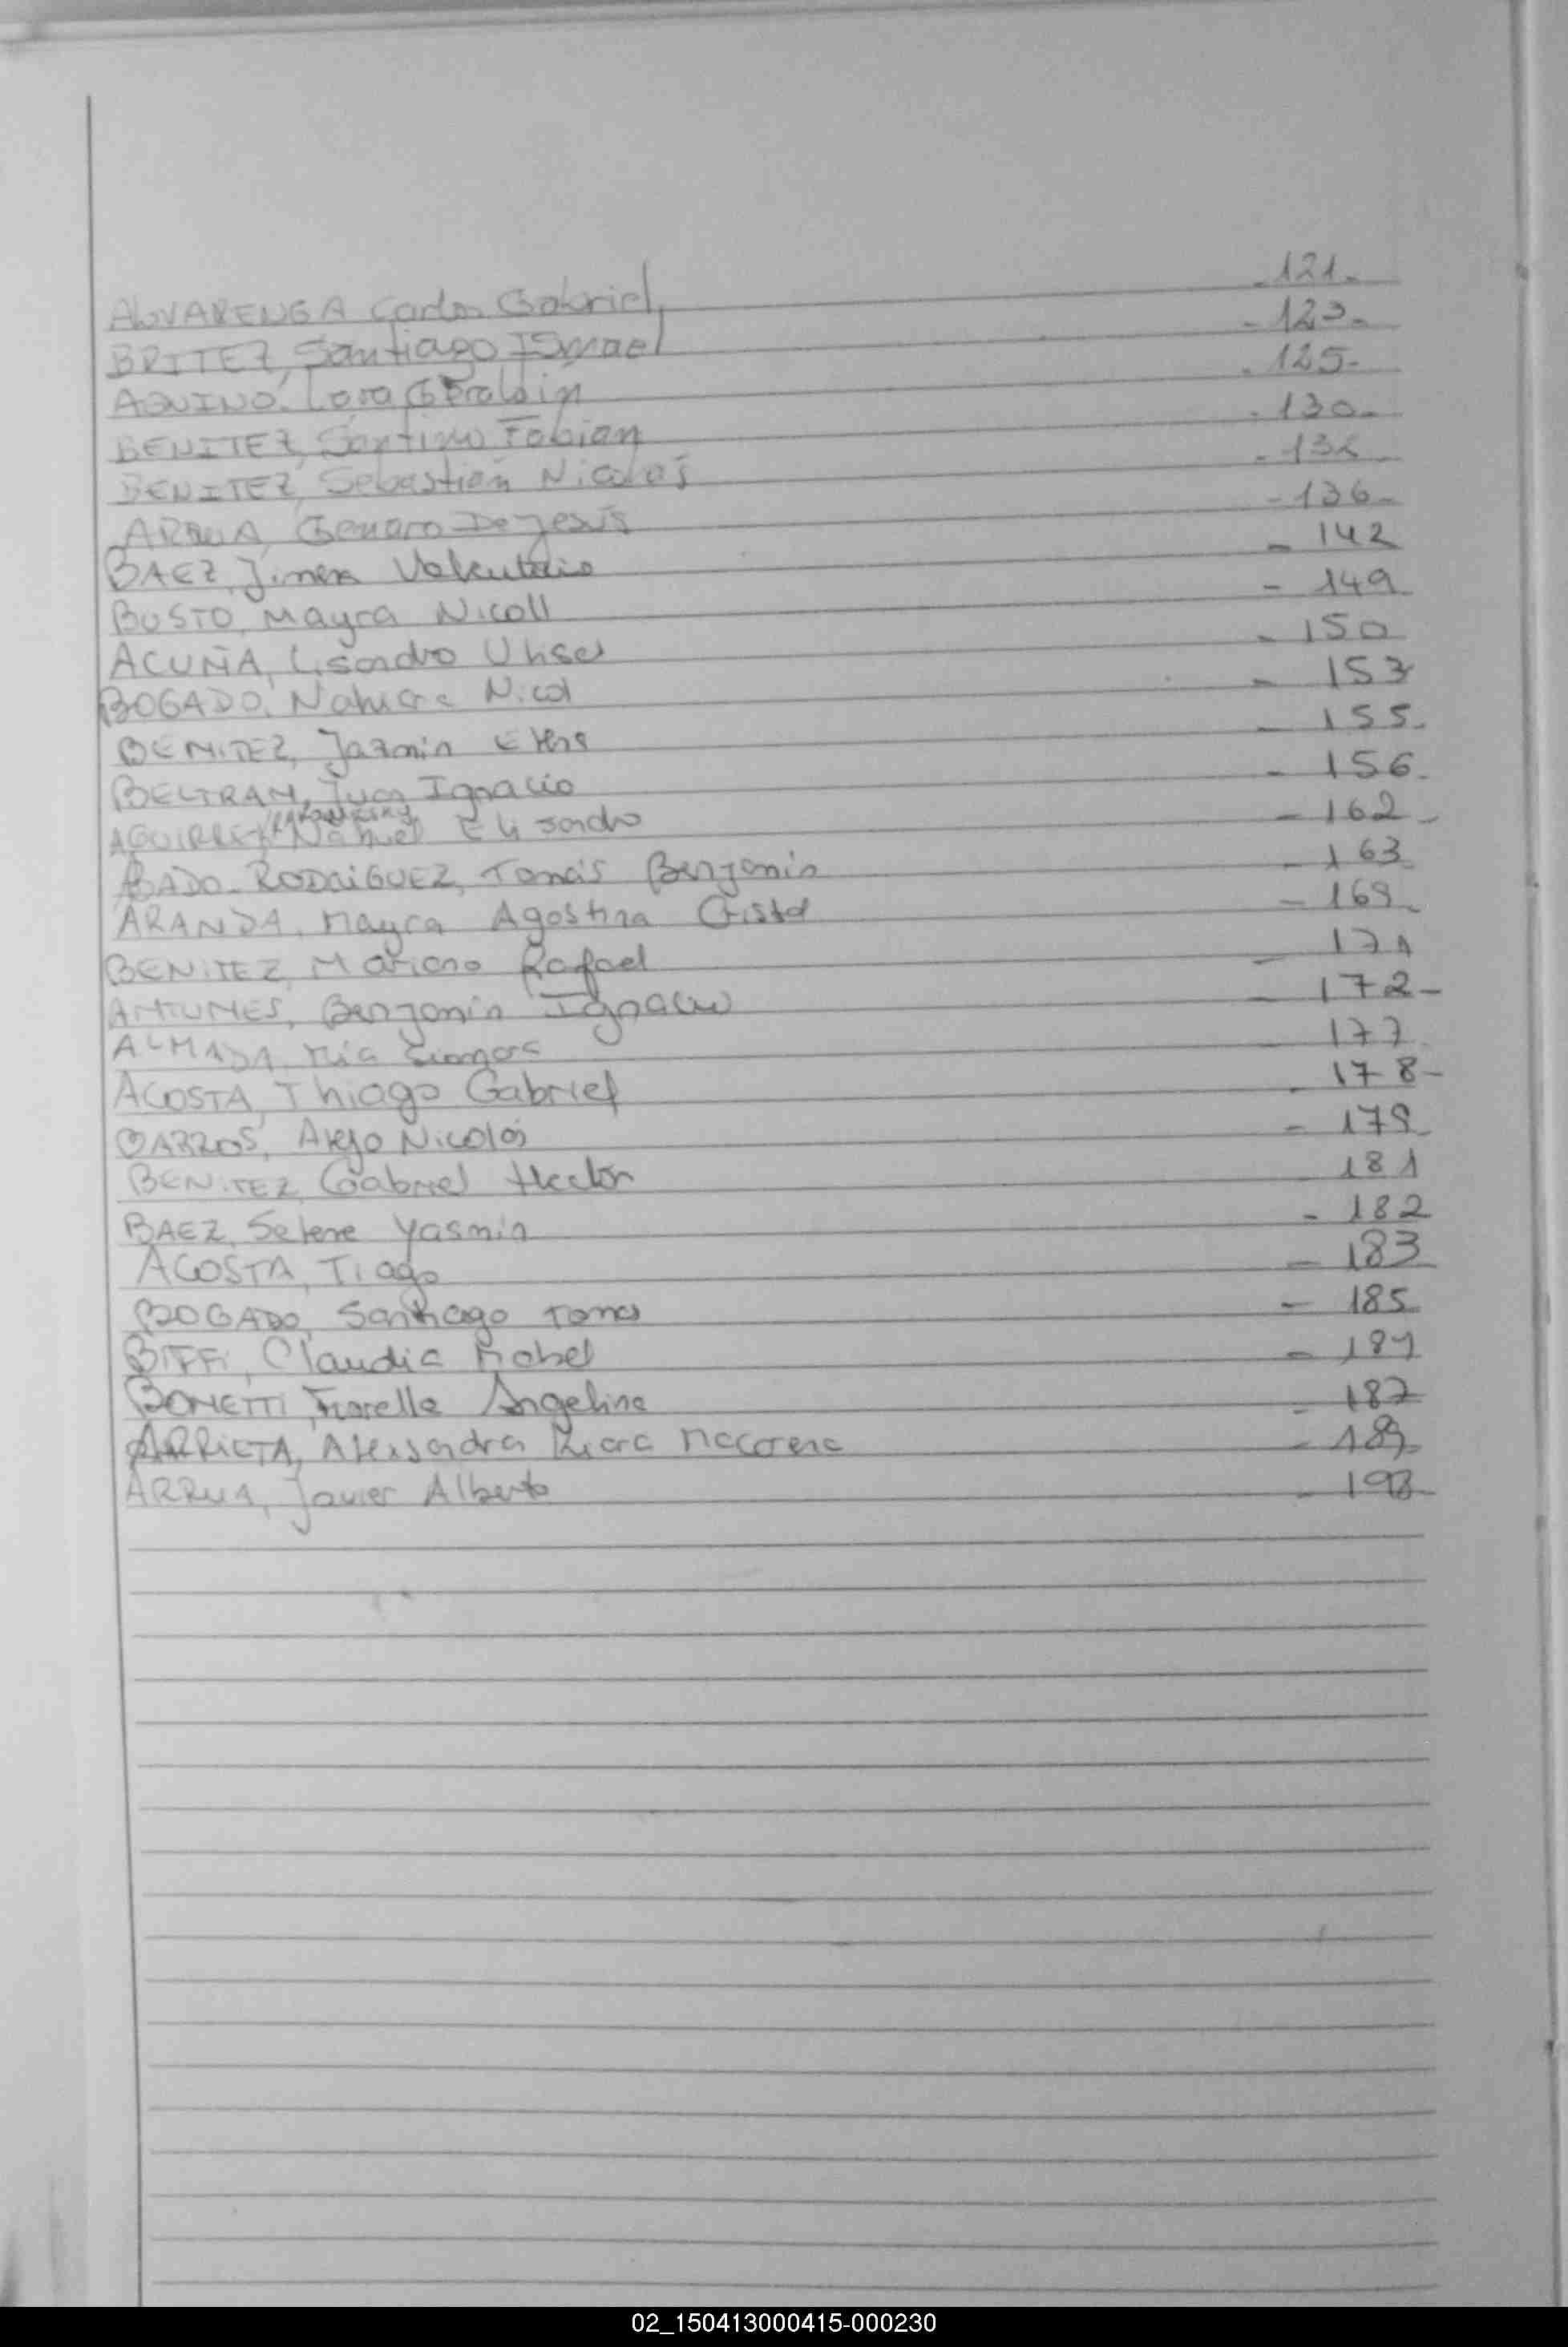 ALVARENGA Carlos Gabriel, - 121 -
BRITEZ, Santiago ISmael - 123 -
AQUINO, Lara GEraldin - 125 -
BENITEZ, Santino Fabian - 130 -
BENITEZ, Sebastián Nicolas -
ARRUA, Genaro De Jesús - 136 -
BAEZ, Jimena - 142
BUSTO, Mayra Nicoll - 149
ACUÑA, Lisandro Ulises - 150
BOGADO, Nahiara Nicol - 153
BENITEZ, Jazmín - 155 -
BELTRAN, Juan Ignacio - 156 -
AGUIRRE Nahuel Elisandro - 162 -
ABADO - RODRIGUEZ, Tomás Benjamin - 163
ARANDA, Mayra Agostina Cristal - 169 -
BENITEZ, Mariano Rafael - 171
ANTUNES, Benjamin Ignacio - 172 -
ALMADA, Mía - 177
ACOSTA, Thiago Gabriel - 178 -
BARROS, Alejo Nicolás - 179
BENITEZ, Gabriel Hector 181
BAEZ, Selene Yasmin - 182
ACOSTA, Tiago - 183
BOGADO, Santiago Tomas - 185
BIFFI, Claudia Mabel -
BONETTI, Fiorella Angelina - 187
ARRIETA, Alessandra Kiara Macarena - 189 -
ARRUA, Javier Alberto -
02_150413000415-000230